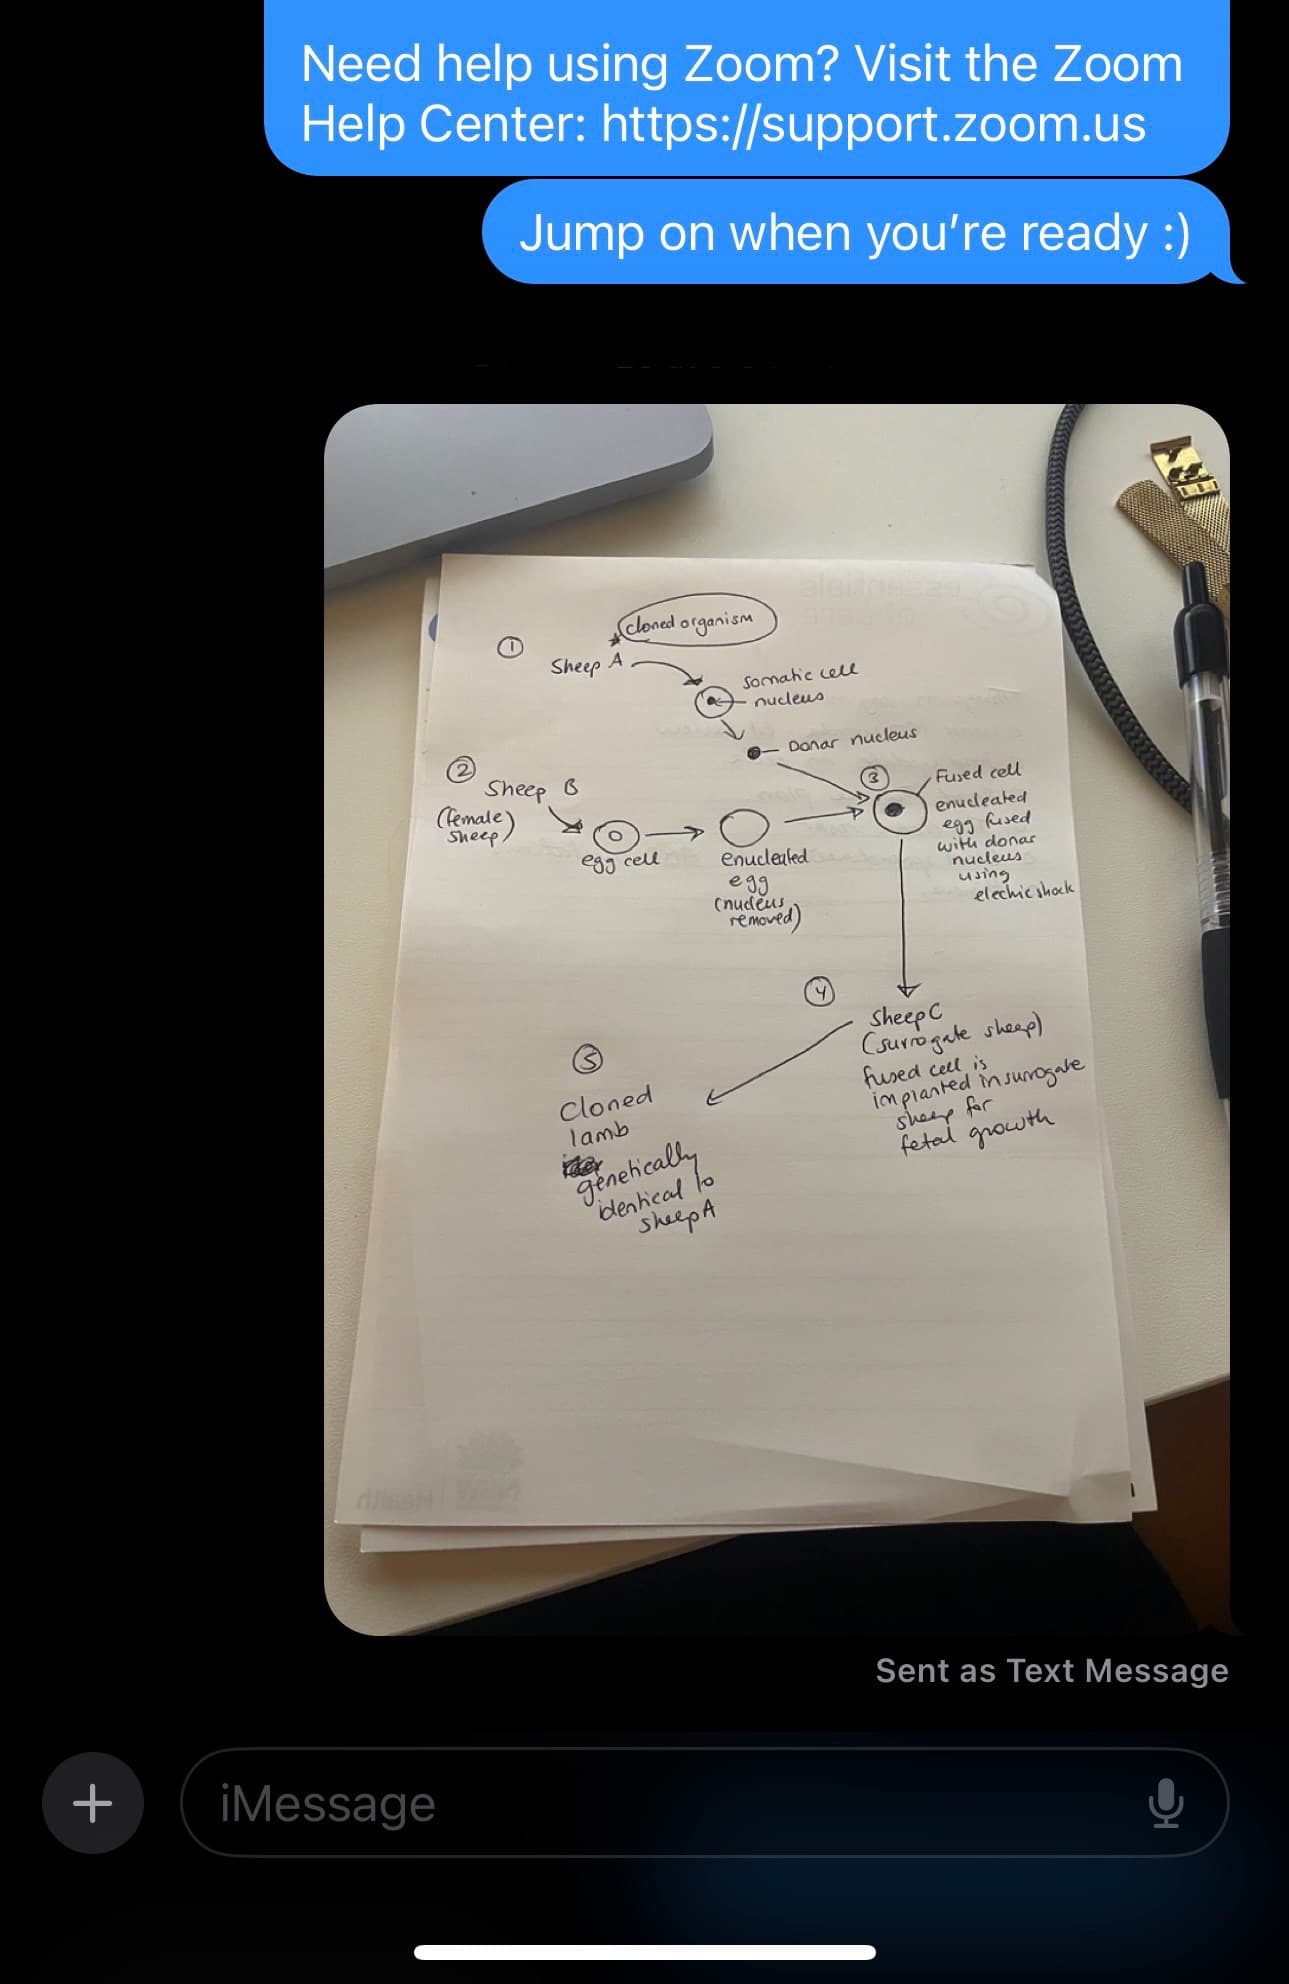 Need help using Zoom? Visit the Zoom
Help Center: https://support.zoom.us
Jump on when you’re ready :)
cloned organism
1
Sheep A
somatic cell
nucleus
Donar nucleus
2
Sheep B
(female
sheep)
egg cell
enucleated
egg
(nucleus
removed)
3
Fused cell
enucleated
egg fused
with donar
nucleus
using
electric shock
4
Sheep C
(surrogate sheep)
fused cell is
implanted in surrogate
sheep for
fetal growth
5
Cloned
lamb
genetically
identical to
sheep A
Sent as Text Message
iMessage